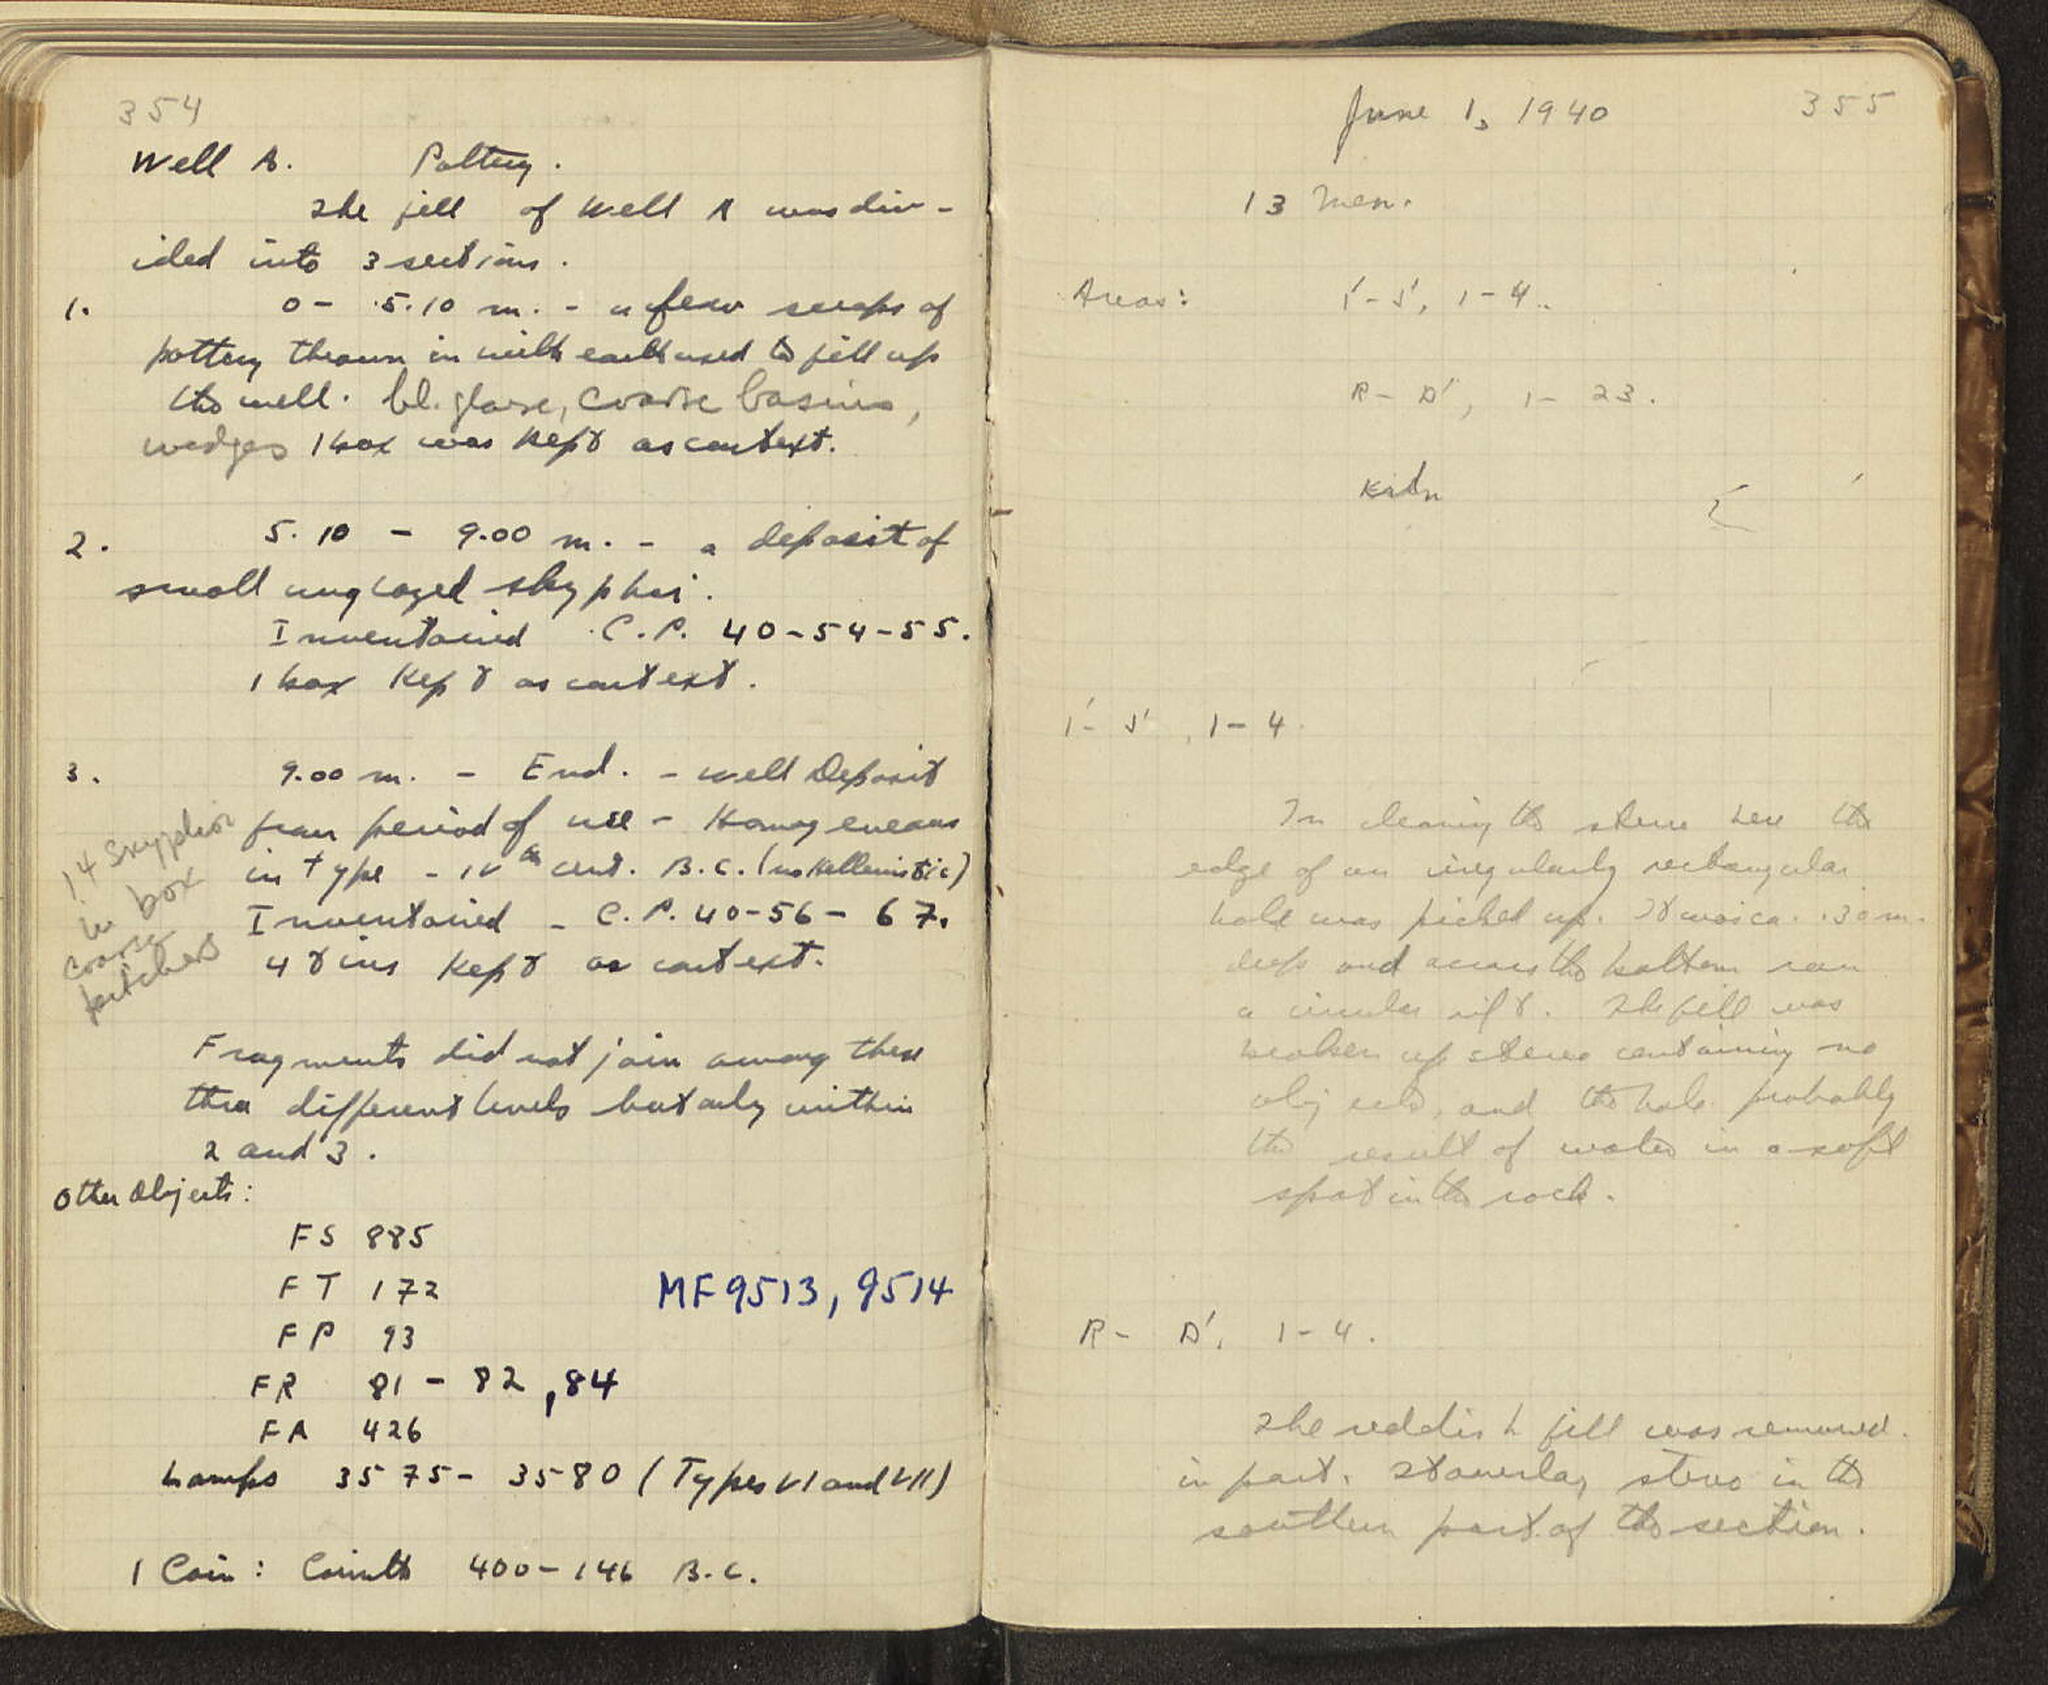 354
Well A. Pottery.
The fill of Well A was div-
ided into 3 sections.
1. 0 - 5.10 m. - a few scraps of
pottery thrown in with earth used to fill up
the well. bl. glaze, coarse basins,
wedges 1 box was kept as context.
2. 5.10 - 9.00 m. - a deposit of
small unglazed skyphoi.
Inventoried C.P. 40-54-55.
1 box kept as context.
3. 9.00 m. - End. - well Deposit
from period of use - Homogeneous
in type - IV th cent. B.C. (no Hellenistic)
Inventoried - C.P. 40-56-67.
4 tins kept as context.
14 skyphoi
in box
coarse
pitchers
Fragments did not join among these
three different levels but only within
2 and 3.
Other Objects:
FS 885
FT 172
MF 9513, 9514
FP 93
FR 81 - 82, 84
FA 426
Lamps 3575 - 3580 (Types VI and VII)
1 Coin: Corinth 400-146 B.C.
June 1, 1940
355
13 Men.
Areas: I'-J', 1-4.
R - D', 1-23.
Kiln
I'-J', 1-4.
In cleaning the stereo here the
edge of an irregularly rectangular
hole was picked up. It was ca. .30 m.
deep and across the bottom ran
a circular rift. The fill was
broken up stereo containing no
objects, and the hole probably
the result of water in a soft
spot in the rock.
R - D', 1-4.
The reddish fill was removed
in part. stereo in the
southern part of the section.